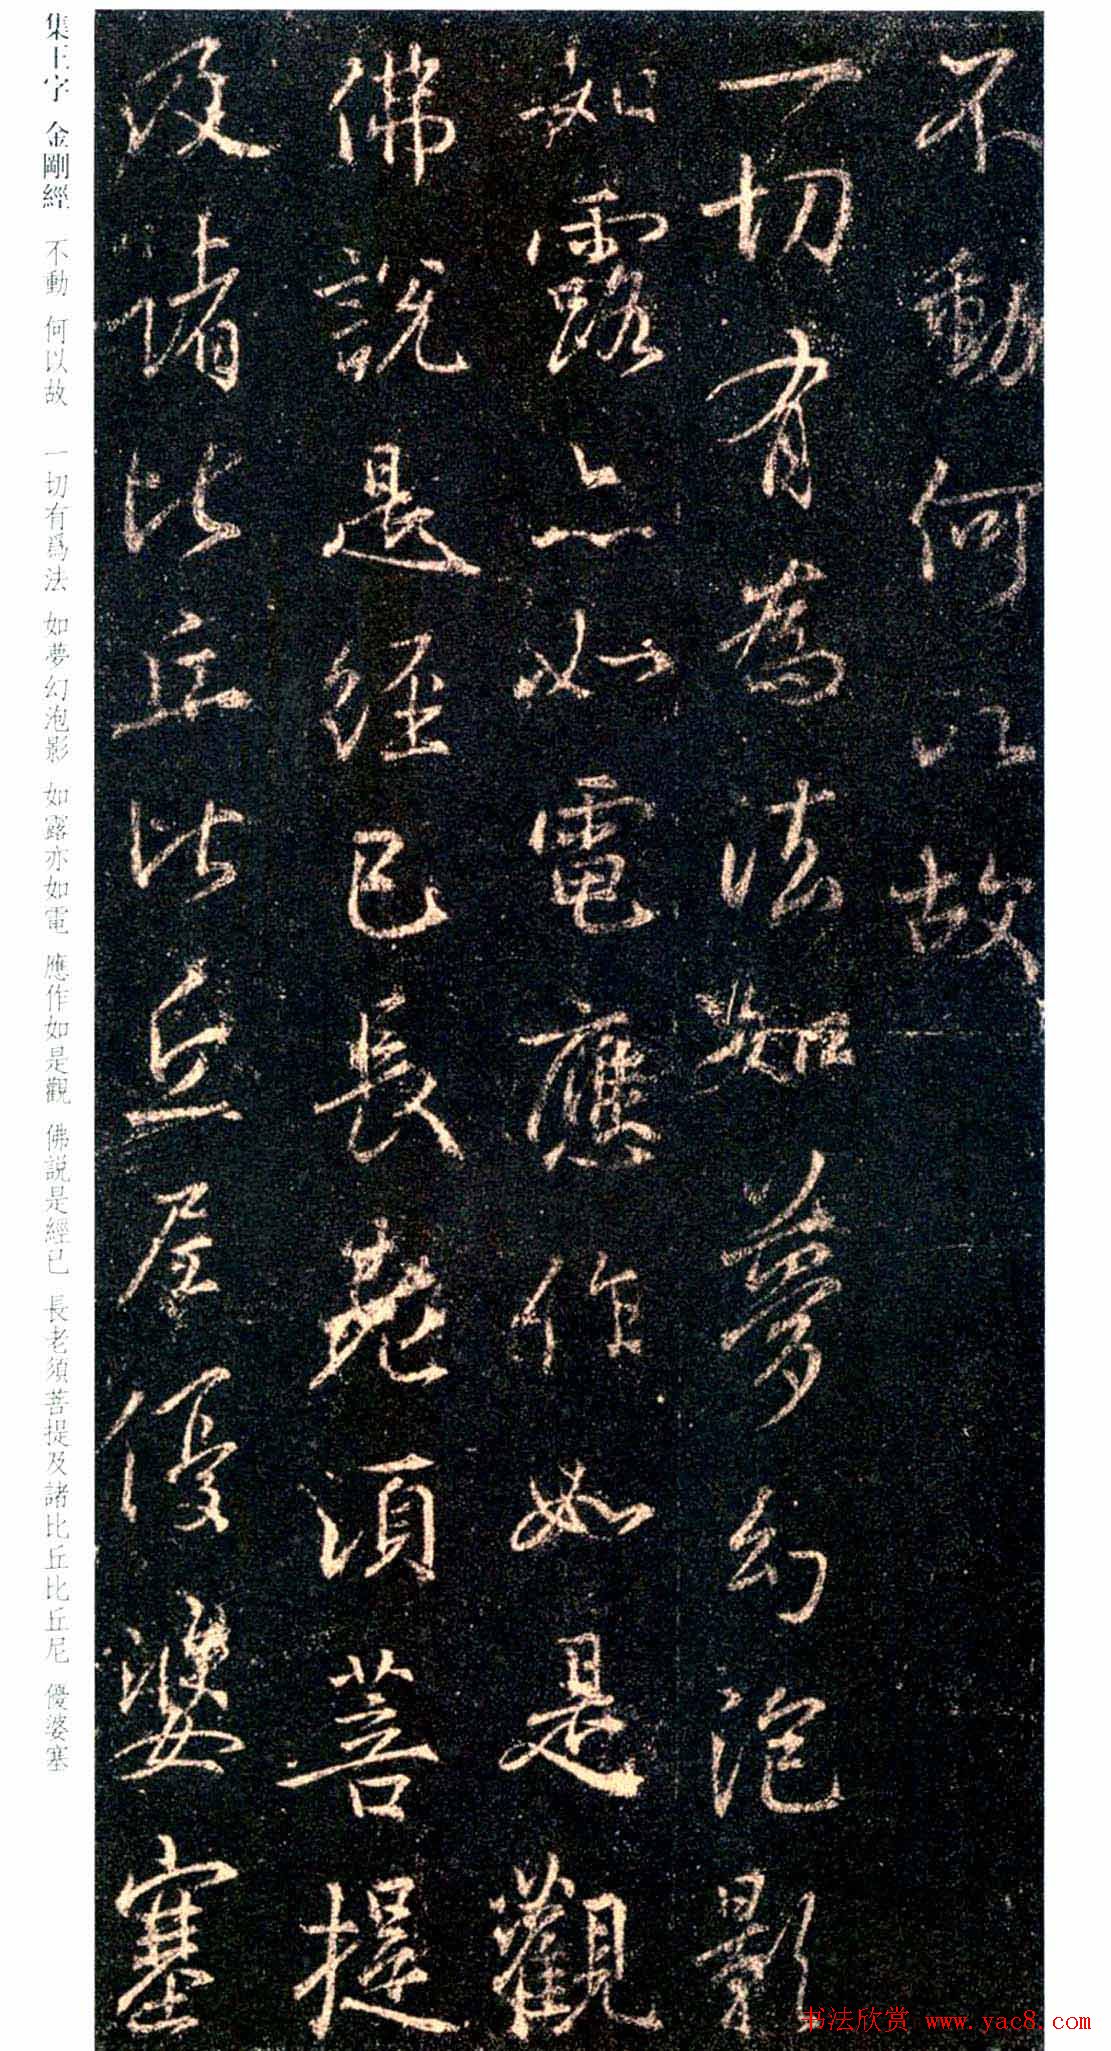 不動何以故
一切有為法如夢幻泡影
如露亦如電應作如是觀
佛說是經已長老須菩提
及諸比丘比丘尼優婆塞
集王字 金剛經 不動 何以故 一切有爲法 如夢幻泡影 如露亦如電 應作如是觀 佛説是經已 長老須菩提及諸比丘比丘尼 優婆塞
书法欣赏 www.yac8.com